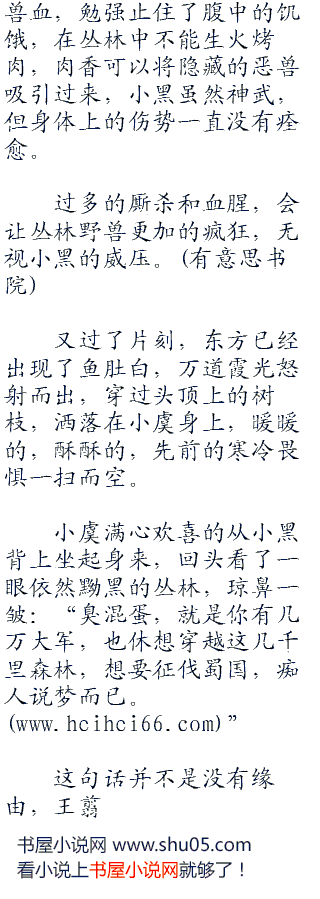 兽血，勉强止住了腹中的饥
饿，在丛林中不能生火烤
肉，肉香可以将隐藏的恶兽
吸引过来，小黑虽然神武，
但身体上的伤势一直没有痊
愈。
过多的厮杀和血腥，会
让丛林野兽更加的疯狂，无
视小黑的威压。(有意思书
院)
又过了片刻，东方已经
出现了鱼肚白，万道霞光怒
射而出，穿过头顶上的树
枝，洒落在小虞身上，暖暖
的，酥酥的，先前的寒冷畏
惧一扫而空。
小虞满心欢喜的从小黑
背上坐起身来，回头看了一
眼依然黝黑的丛林，琼鼻一
皱：“臭混蛋，就是你有几
万大军，也休想穿越这几千
里森林，想要征伐蜀国，痴
人说梦而已。
(www.hcihci66.com)”
这句话并不是没有缘
由，王翦
书屋小说网 www.shu05.com
看小说上书屋小说网就够了！